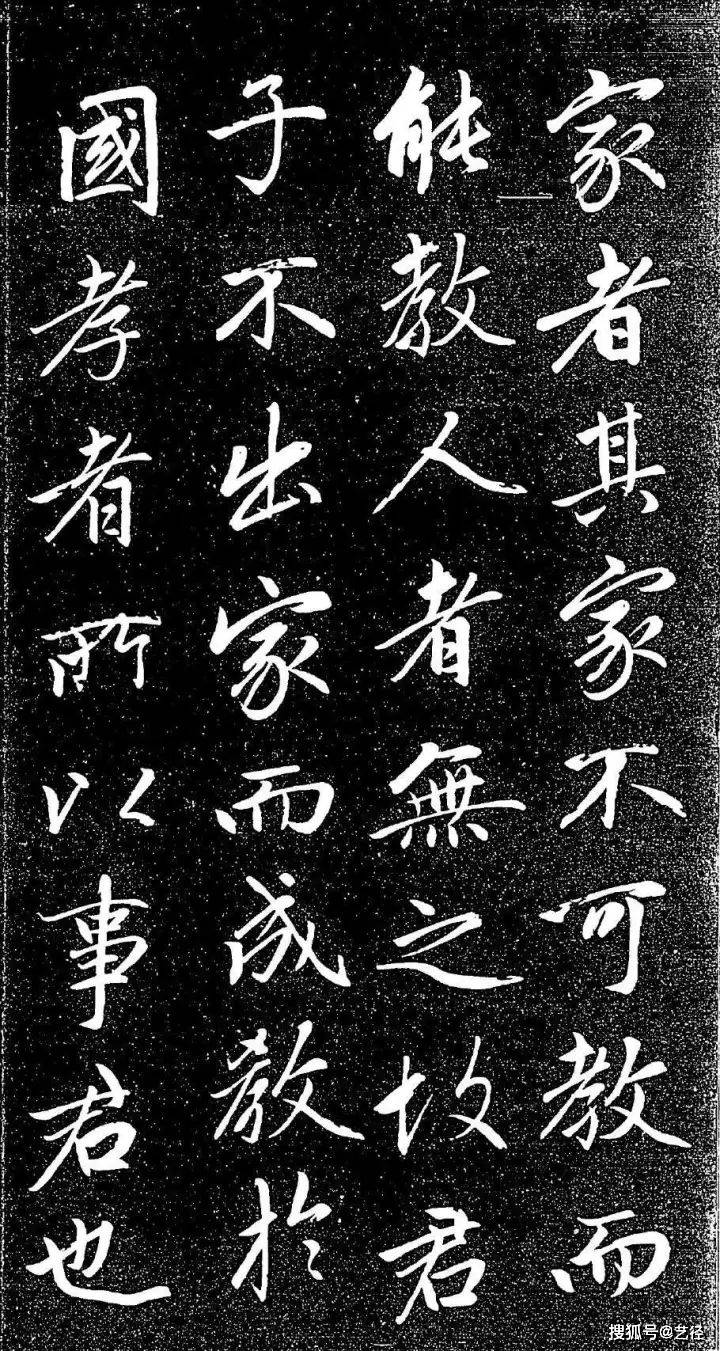 家者其家不可教而
能教人者無之故君
子不出家而成教於
國孝者所以事君也
搜狐号@艺径